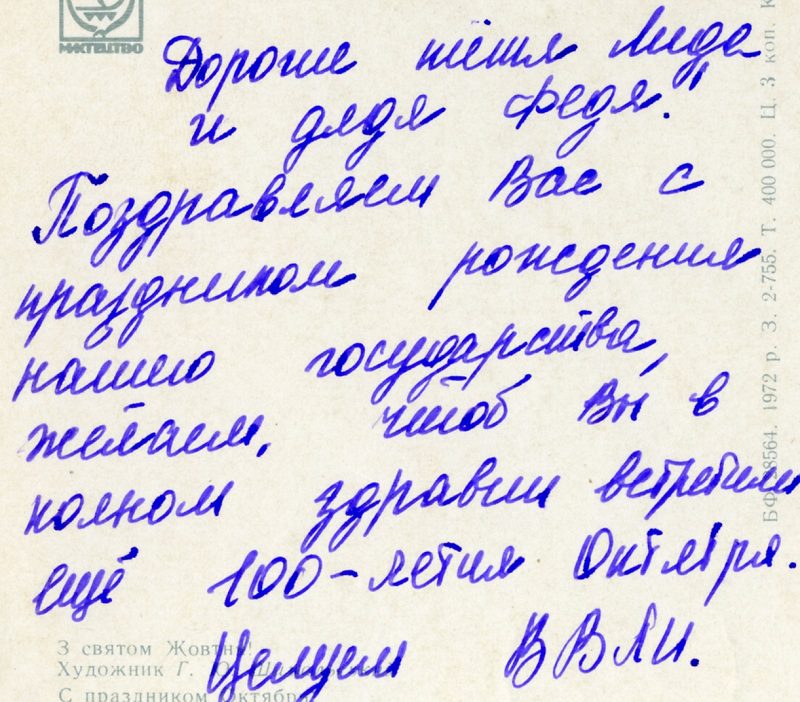 МИСТЕЦТВО
Дорогие тётя Лида
и дядя Федя!
Поздравляем Вас с
праздником рождения
нашего государства,
желаем, чтоб Вы в
полном здравии встретили
ещё 100-летия Октября.
Целуем ВВЛИ.
З святом Жовтня!
Художник Г.
С праздником Октября
1972 р. З. 2-755. Т. 400 000. Ц. 3 коп.